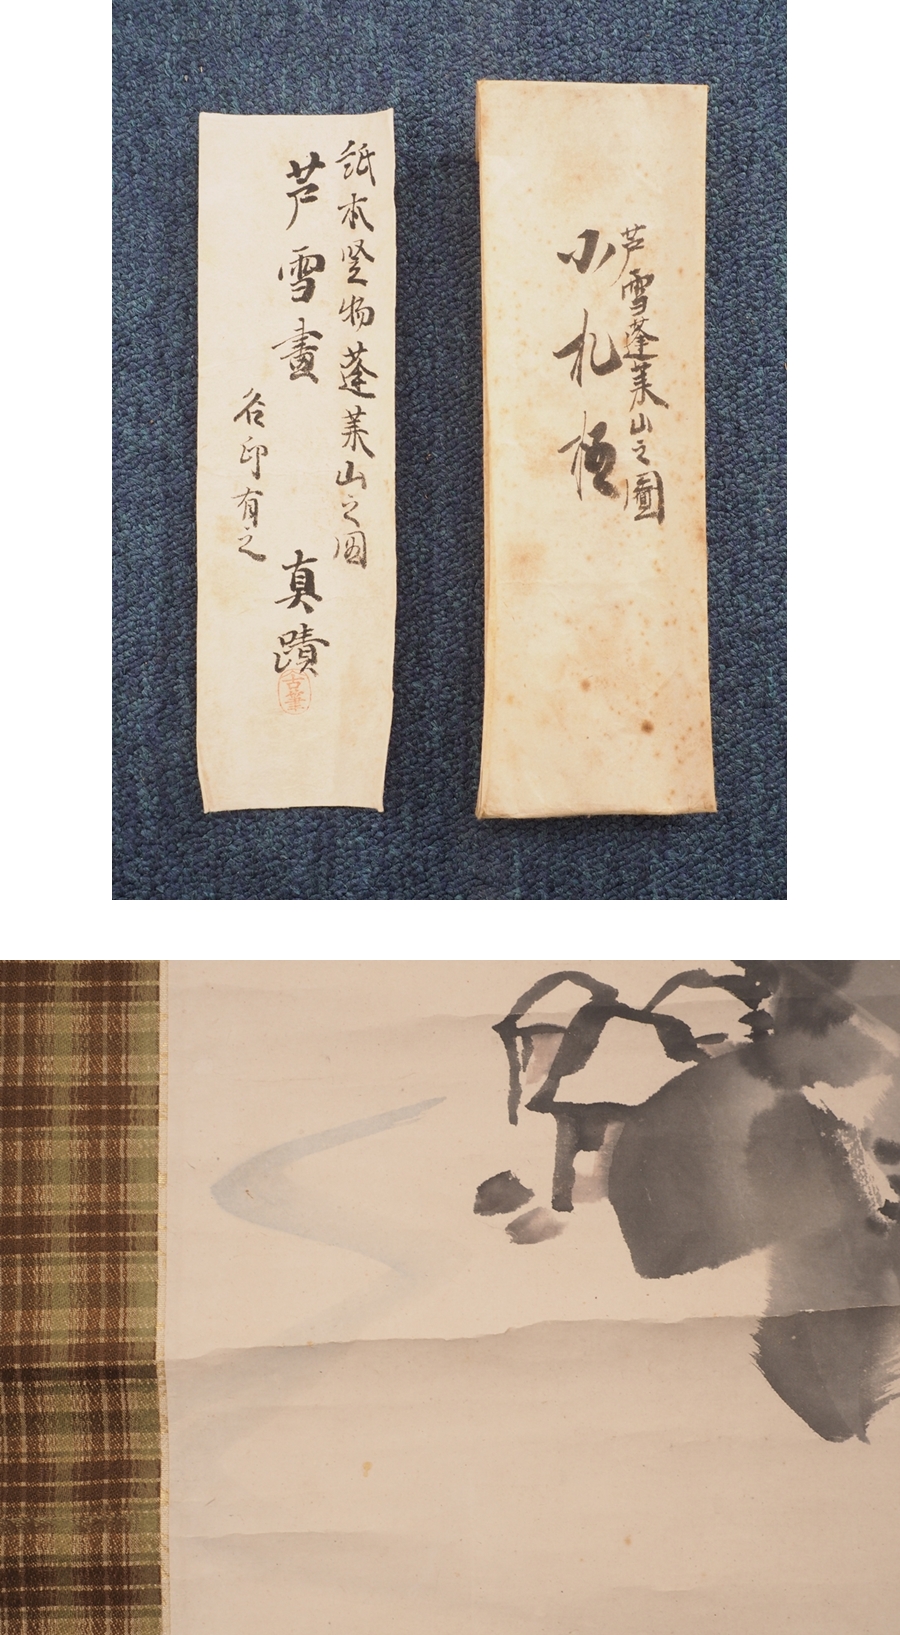 紙本竪物蓬莱山之図
芦雪畫 真蹟
名印有之
芦雪蓬莱山之圖
小札極